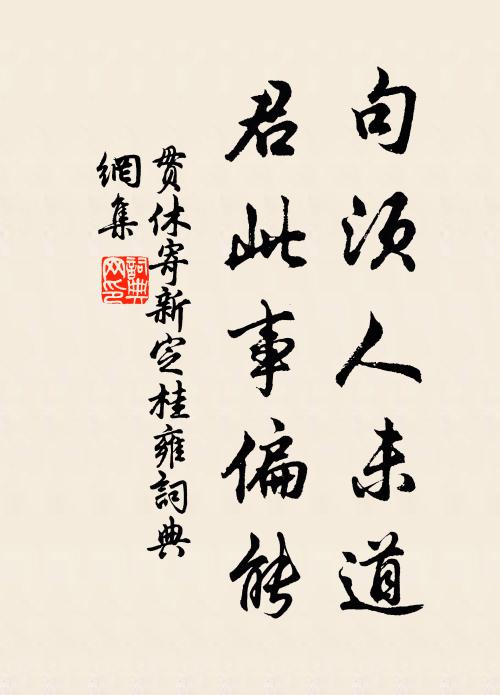 句須人未道
君此事偏能
貫休寄新定桂雍詞典
網集
詞典
網印